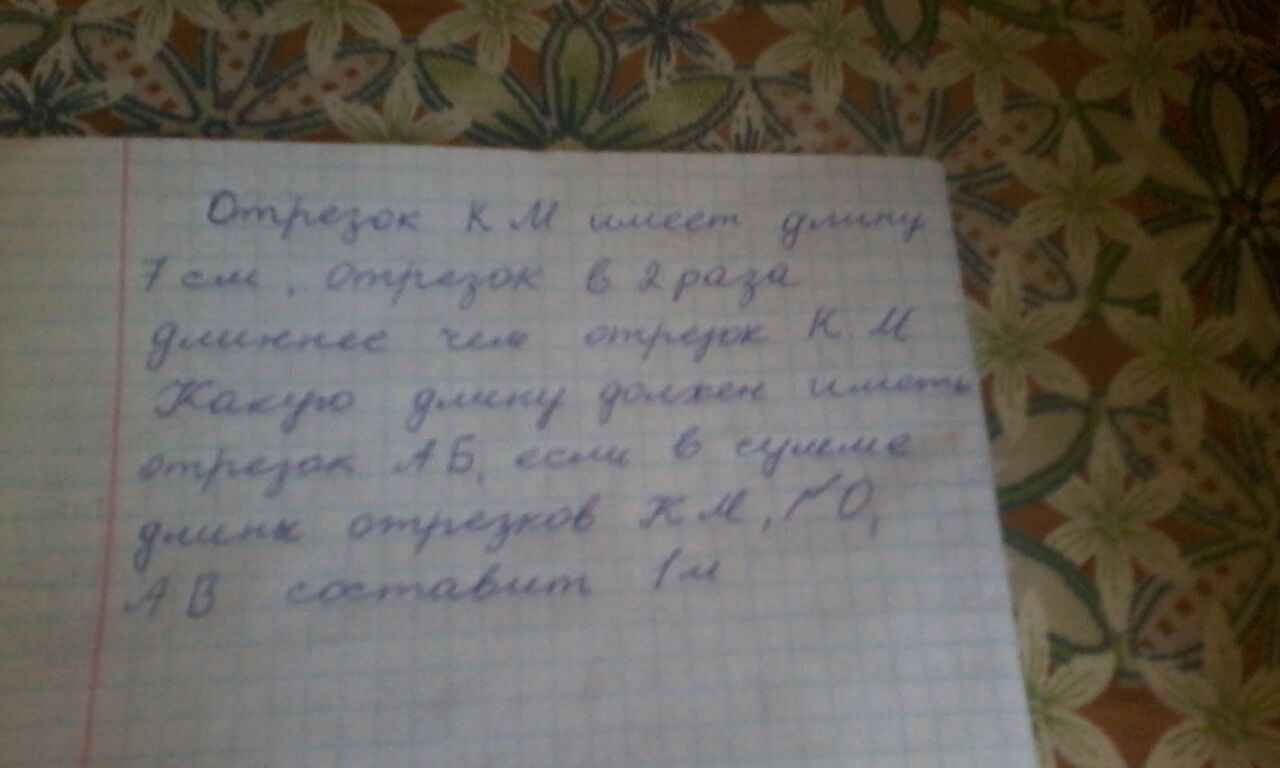 Отрезок К М имеет длину
7 см, отрезок в 2 раза
длиннее чем отрезок К. М
Какую длину должен иметь
отрезок АБ, если в сумме
длина отрезков КМ, ГО,
АВ составит 1 м